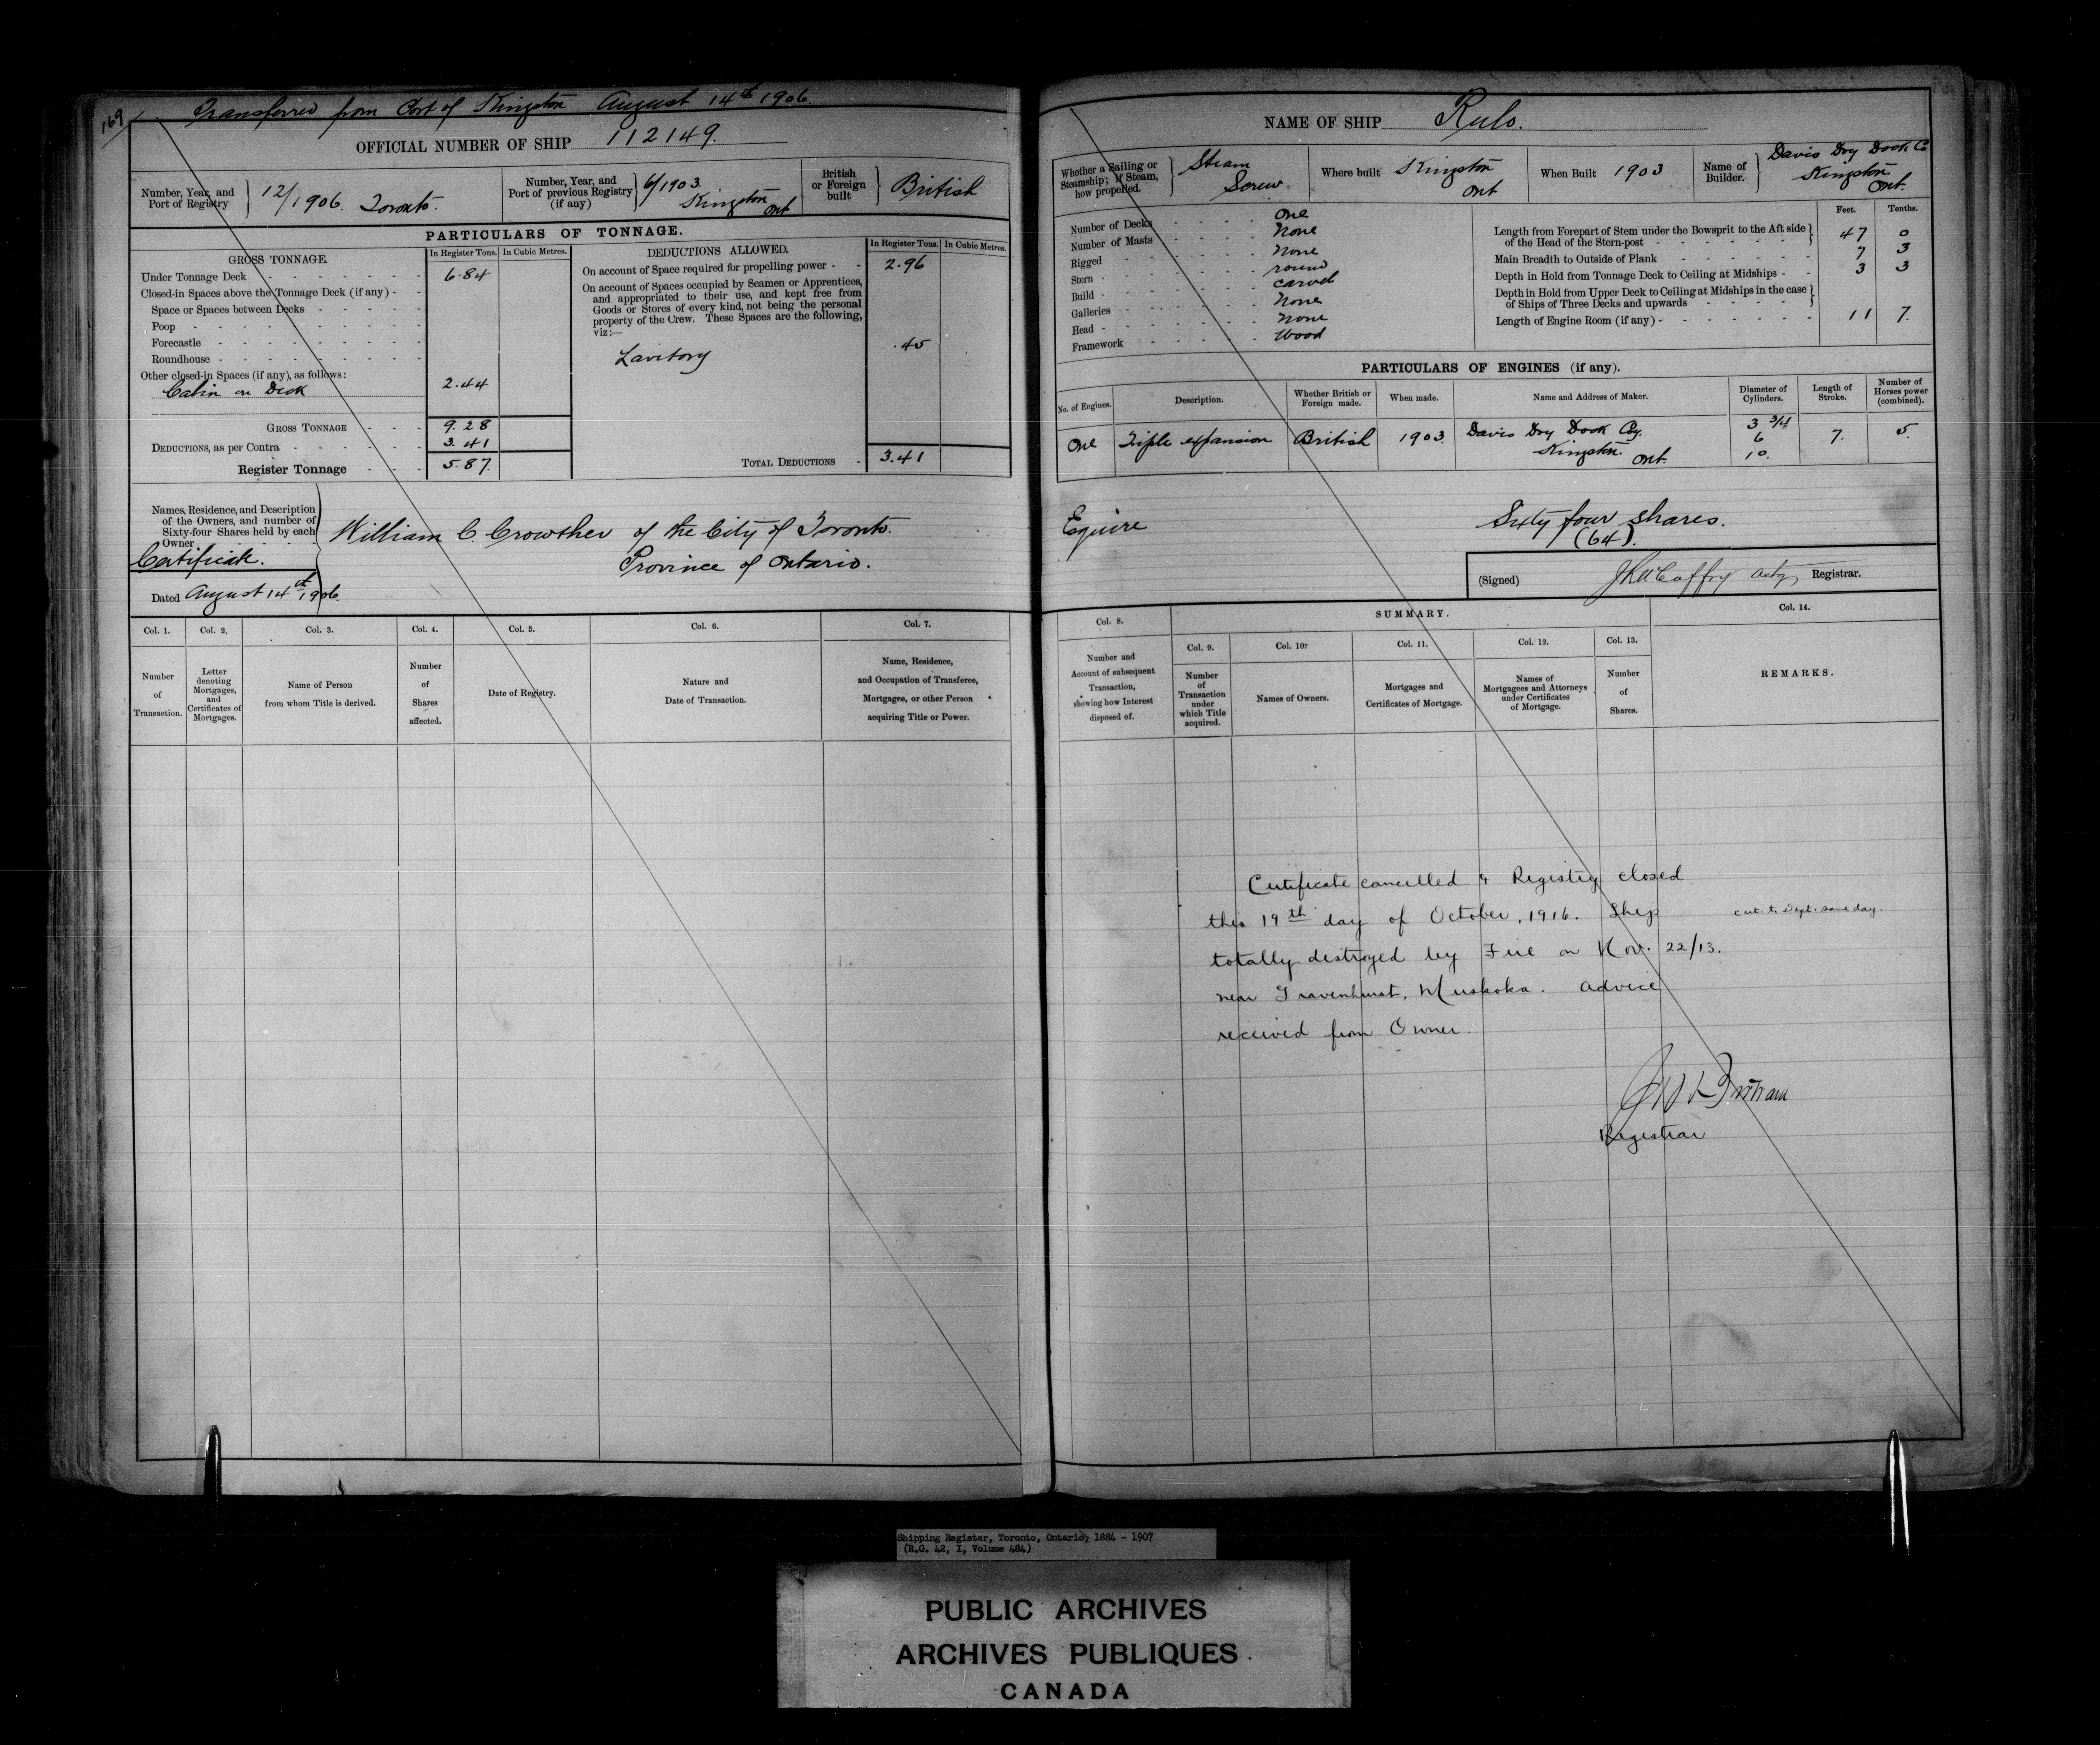 169
Transferred from Port of Kingston August 14th 1906.
OFFICIAL NUMBER OF SHIP 112149.
Number, Year, and Port of Registry } 12/1906. Toronto.
Number, Year, and Port of previous Registry (if any) } 6/1903. Kingston Ont
British or Foreign built } British
PARTICULARS OF TONNAGE.
GROSS TONNAGE.
In Register Tons. In Cubic Metres.
Under Tonnage Deck 6.84
Closed-in Spaces above the Tonnage Deck (if any) -
Space or Spaces between Decks
Poop
Forecastle
Roundhouse
Other closed-in Spaces (if any), as follows:
Cabin on Deck 2.44
GROSS TONNAGE 9.28
DEDUCTIONS, as per Contra 3.41
Register Tonnage 5.87.
DEDUCTIONS ALLOWED.
In Register Tons. In Cubic Metres.
On account of Space required for propelling power - 2.96
On account of Spaces occupied by Seamen or Apprentices,
and appropriated to their use, and kept free from
Goods or Stores of every kind, not being the personal
property of the Crew. These Spaces are the following,
viz:—
Lavitory .45
TOTAL DEDUCTIONS 3.41
Names, Residence, and Description
of the Owners, and number of
Sixty-four Shares held by each
Owner
Certificate.
Dated August 14th 1906.
William C. Crowther of the City of Toronto.
Province of Ontario.
Col. 1. Col. 2. Col. 3. Col. 4. Col. 5. Col. 6. Col. 7.
Number of Transaction.
Letter denoting Mortgages, and Certificates of Mortgages.
Name of Person from whom Title is derived.
Number of Shares affected.
Date of Registry.
Nature and Date of Transaction.
Name, Residence, and Occupation of Transferee, Mortgagee, or other Person acquiring Title or Power.
NAME OF SHIP Rulo.
Whether a Sailing or Steamship; If Steam, how propelled. } Steam Screw
Where built Kingston Ont
When Built 1903
Name of Builder. } Davis Dry Dock Co Kingston Ont.
Number of Decks One
Number of Masts None
Rigged None
Stern round
Build carvel
Galleries None
Head None
Framework Wood
Feet. Tenths.
Length from Forepart of Stem under the Bowsprit to the Aft side
of the Head of the Stern-post 47 0
Main Breadth to Outside of Plank 7 3
Depth in Hold from Tonnage Deck to Ceiling at Midships 3 3
Depth in Hold from Upper Deck to Ceiling at Midships in the case
of Ships of Three Decks and upwards
Length of Engine Room (if any) 11 7.
PARTICULARS OF ENGINES (if any).
No. of Engines. Description. Whether British or Foreign made. When made. Name and Address of Maker. Diameter of Cylinders. Length of Stroke. Number of Horses power (combined).
One Triple expansion British 1903. Davis Dry Dock Coy. Kingston Ont. 3 3/4 6 10. 7. 5.
Esquire
Sixty four shares.
(64).
(Signed) McCaffry Actg Registrar.
SUMMARY.
Col. 8. Col. 9. Col. 10. Col. 11. Col. 12. Col. 13. Col. 14.
Number and Account of subsequent Transaction, showing how Interest disposed of.
Number of Transaction under which Title acquired.
Names of Owners.
Mortgages and Certificates of Mortgage.
Names of Mortgagees and Attorneys under Certificates of Mortgage.
Number of Shares.
REMARKS.
Certificate cancelled & Registry closed
this 19th day of October, 1916. Ship
cert. to Dept. same day.
totally destroyed by Fire on Nov. 22/13.
near Gravenhurst, Muskoka. Advice
received from Owner.
Registrar
Shipping Register, Toronto, Ontario, 1884 - 1907
(R.G. 42, I, Volume 484)
PUBLIC ARCHIVES
ARCHIVES PUBLIQUES
CANADA